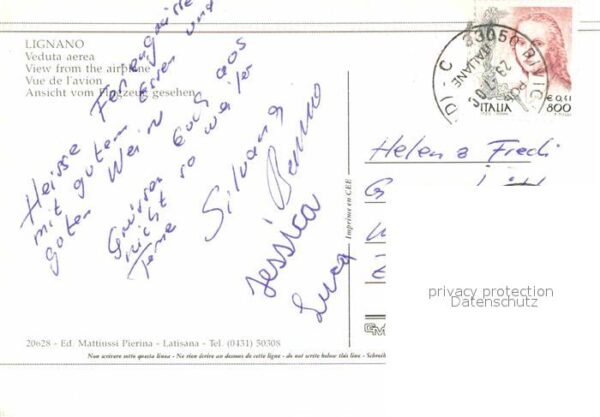 LIGNANO
Veduta aerea
View from the airplane
Vue de l'avion
Ansicht vom Flugzeug gesehen
Heisse Feriengrüsse
mit gutem Essen und
guten Wein
Grüssen Euch aos
nicht so weiter
Terne
Silvana
Jessica
Luca
Imprimé en CEE
33050 RIVIG
ITALIA
€ 0,41
800
Helen & Fredi
privacy protection
Datenschutz
20628 - Ed. Mattiussi Pierina - Latisana - Tel. (0431) 50308
Non scrivere sotto questa linea - Ne rien écrire au dessous de cette ligne - do not write below this line - Schreib